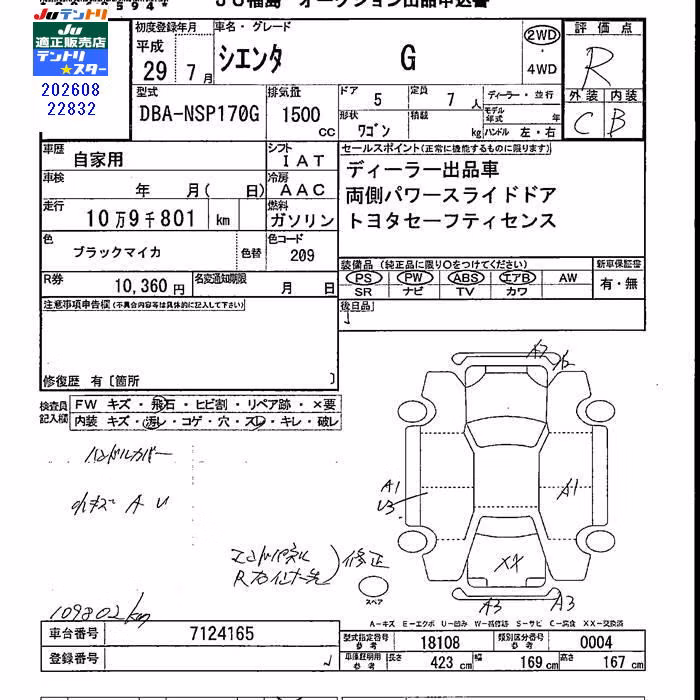 JU福島 オークション出品申込書
Juテントリ
Ju
適正販売店
テントリ
★スター
202608
22832
初度登録年月
平成
29年7月
車名・グレード
シエンタ G
2WD
・
4WD
評価点
R
外装 内装
C B
型式
DBA-NSP170G
排気量
1500 cc
ドア 5
定員 7人
ディーラー・並行
形状 ワゴン
積載 kg
モデル年式 年
ハンドル 左・右
車歴 自家用
シフト IAT
車検 年 月( 日)
冷房 AAC
走行 10万9千801 km
燃料 ガソリン
色 ブラックマイカ 色替
色コード 209
R券 10,360円
名変通知期限 月 日
セールスポイント(正常に機能するものに限ります)
ディーラー出品車
両側パワースライドドア
トヨタセーフティセンス
装備品(純正品に限り○をつけてください)
PS PW ABS エアB AW
SR ナビ TV カワ
新車保証書
有・無
注意事項申告欄(不具合内容等は具体的に記入して下さい)
後日品
修復歴 有〔箇所 〕
検査員記入欄
FW キズ・飛石・ヒビ割・リペア跡・×要
内装 キズ・汚レ・コゲ・穴・スレ・キレ・破レ
ハンドルカバー
小キズ A U
A1
U3
A1
XX
A3 A3
エンドパネル
修正
スペア
109802km
A-キズ E-エクボ U-凹み W-補修跡 S-サビ C-腐食 XX-交換済
車台番号 7124165
登録番号
型式指定番号 参考 18108
類別区分番号 参考 0004
車庫証明用 参考 長さ 423 cm 幅 169 cm 高さ 167 cm